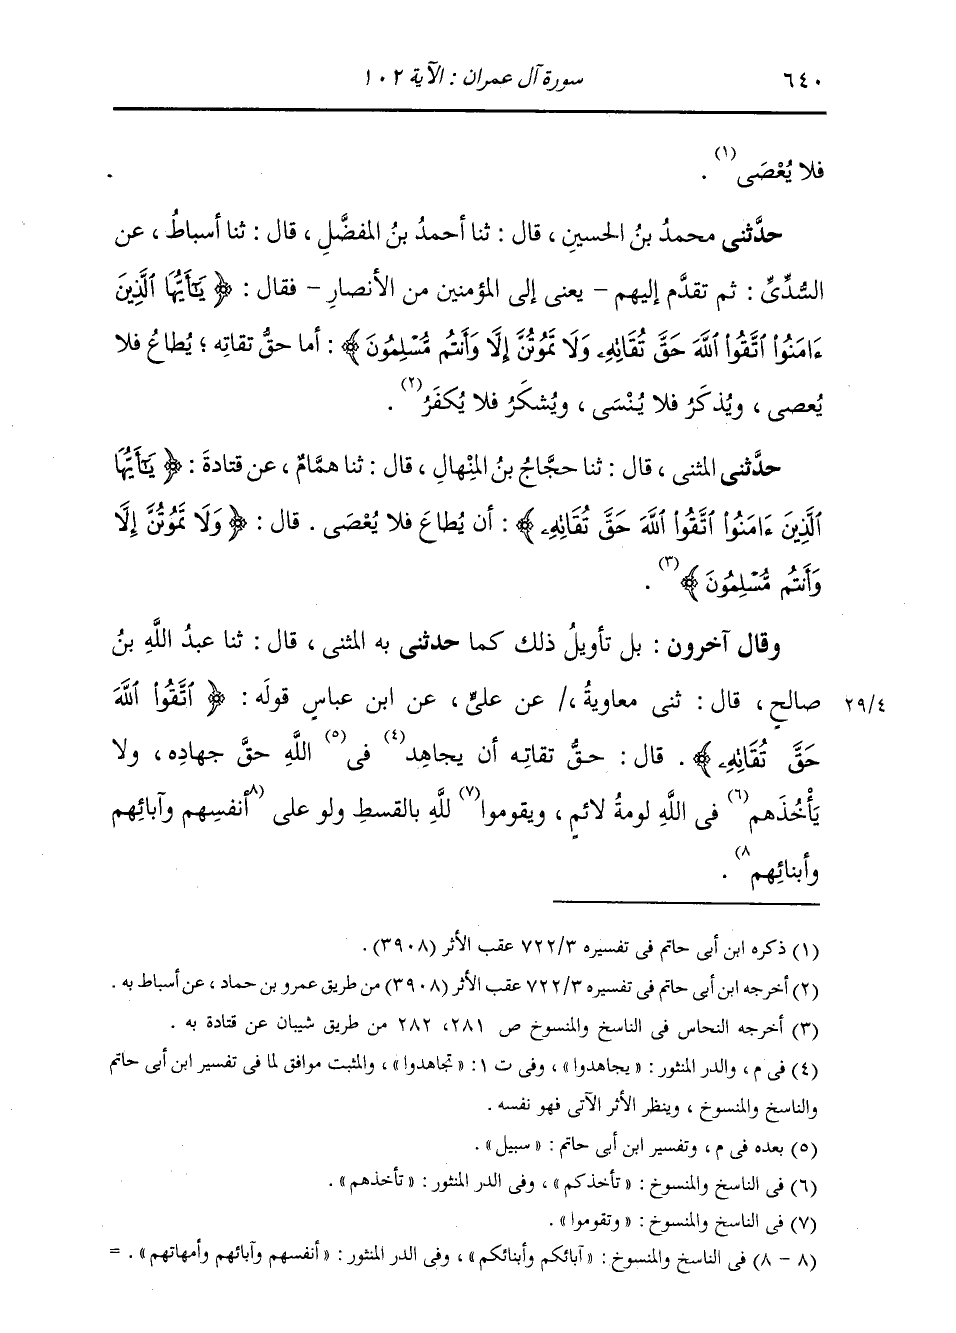 ٦٤٠ سورة آل عمران : الآية ١٠٢
فلا يُعْصَى(١) .
حدَّثنى محمدُ بنُ الحسينِ ، قال : ثنا أحمدُ بنُ المفضَّلِ ، قال : ثنا أسباطُ ، عن
السُّدِّىِّ : ثم تقدَّم إليهم – يعنى إلى المؤمنين من الأنصارِ – فقال : ﴿ يَٰٓأَيُّهَا ٱلَّذِينَ
ءَامَنُوا۟ ٱتَّقُوا۟ ٱللَّهَ حَقَّ تُقَاتِهِۦ وَلَا تَمُوتُنَّ إِلَّا وَأَنتُم مُّسْلِمُونَ ﴾ : أما حقُّ تقاتِه ؛ يُطاعُ فلا
يُعصى ، ويُذكَرُ فلا يُنْسَى ، ويُشكَرُ فلا يُكفَرُ(٢) .
حدَّثنى المثنى ، قال : ثنا حجَّاجُ بنُ المِنْهالِ ، قال : ثنا همَّامٌ ، عن قتادةَ : ﴿ يَٰٓأَيُّهَا
ٱلَّذِينَ ءَامَنُوا۟ ٱتَّقُوا۟ ٱللَّهَ حَقَّ تُقَاتِهِۦ ﴾ : أن يُطاعَ فلا يُعْصَى . قال : ﴿ وَلَا تَمُوتُنَّ إِلَّا
وَأَنتُم مُّسْلِمُونَ ﴾(٣) .
وقال آخرون : بل تأويلُ ذلك كما حدثنى به المثنى ، قال : ثنا عبدُ اللَّهِ بنُ
٢٩/٤ صالحٍ ، قال : ثنى معاويةُ ،/ عن علىٍّ ، عن ابن عباسٍ قولَه : ﴿ ٱتَّقُوا۟ ٱللَّهَ
حَقَّ تُقَاتِهِۦ ﴾ . قال : حقُّ تقاتِه أن يجاهِد(٤) فى(٥) اللَّهِ حقَّ جهادِه ، ولا
يَأْخُذَهم(٦) فى اللَّهِ لومةُ لائمٍ ، ويقوموا(٧) للَّهِ بالقسطِ ولو على (٨أنفسِهم وآبائِهم
وأبنائِهم٨) .
(١) ذكره ابن أبى حاتم فى تفسيره ٧٢٢/٣ عقب الأثر (٣٩٠٨) .
(٢) أخرجه ابن أبى حاتم فى تفسيره ٧٢٢/٣ عقب الأثر (٣٩٠٨) من طريق عمرو بن حماد ، عن أسباط به .
(٣) أخرجه النحاس فى الناسخ والمنسوخ ص ٢٨١، ٢٨٢ من طريق شيبان عن قتادة به .
(٤) فى م ، والدر المنثور : « يجاهدوا » ، وفى ت ١: « تجاهدوا » ، والمثبت موافق لما فى تفسير ابن أبى حاتم
والناسخ والمنسوخ ، وينظر الأثر الآتى فهو نفسه .
(٥) بعده فى م ، وتفسير ابن أبى حاتم : « سبيل » .
(٦) فى الناسخ والمنسوخ : « تأخذكم » ، وفى الدر المنثور : « تأخذهم » .
(٧) فى الناسخ والمنسوخ : « وتقوموا » .
(٨ – ٨) فى الناسخ والمنسوخ : « آبائكم وأبنائكم » ، وفى الدر المنثور : « أنفسهم وآبائهم وأمهاتهم » . =